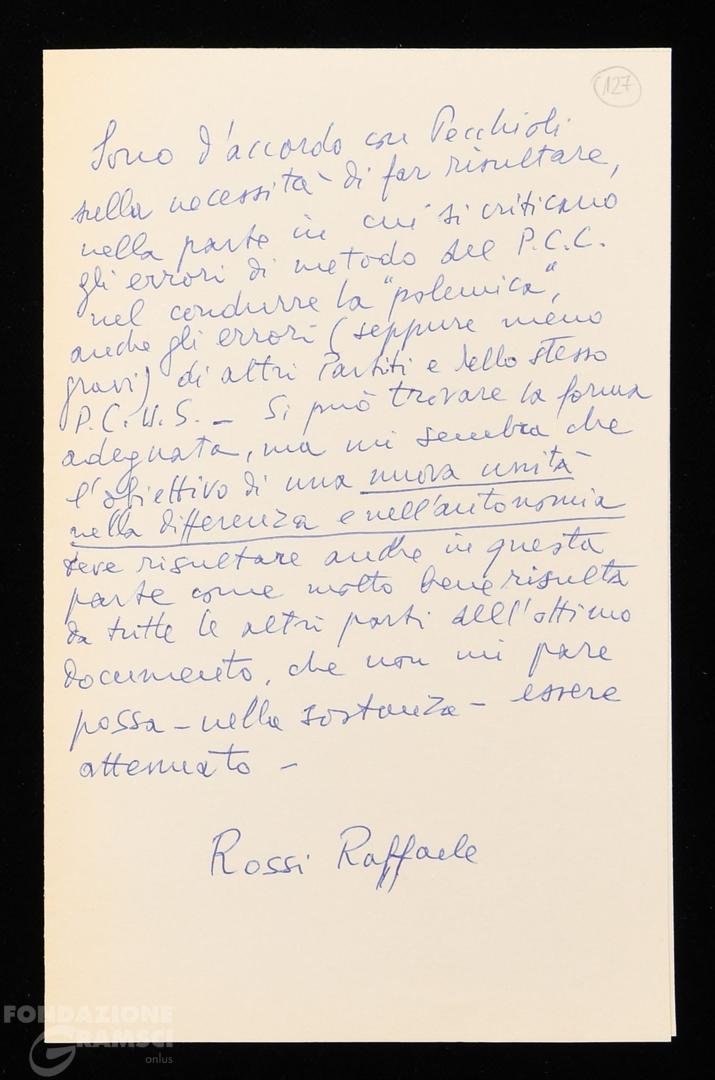 127
Sono d'accordo con Pecchioli
sulla necessità di far risultare,
nella parte in cui si criticano
gli errori di metodo del P.C.C.
nel condurre la "polemica",
anche gli errori (seppure meno
gravi) di altri Partiti e dello stesso
P.C.U.S. _ Si può trovare la forma
adeguata, ma mi sembra che
l'obiettivo di una nuova unità
nella differenza e nell'autonomia
deve risultare anche in questa
parte come molto bene risulta
da tutte le altri parti dell'ottimo
documento, che non mi pare
possa - nella sostanza - essere
attenuato -
Rossi Raffaele
FONDAZIONE
GRAMSCI
onlus